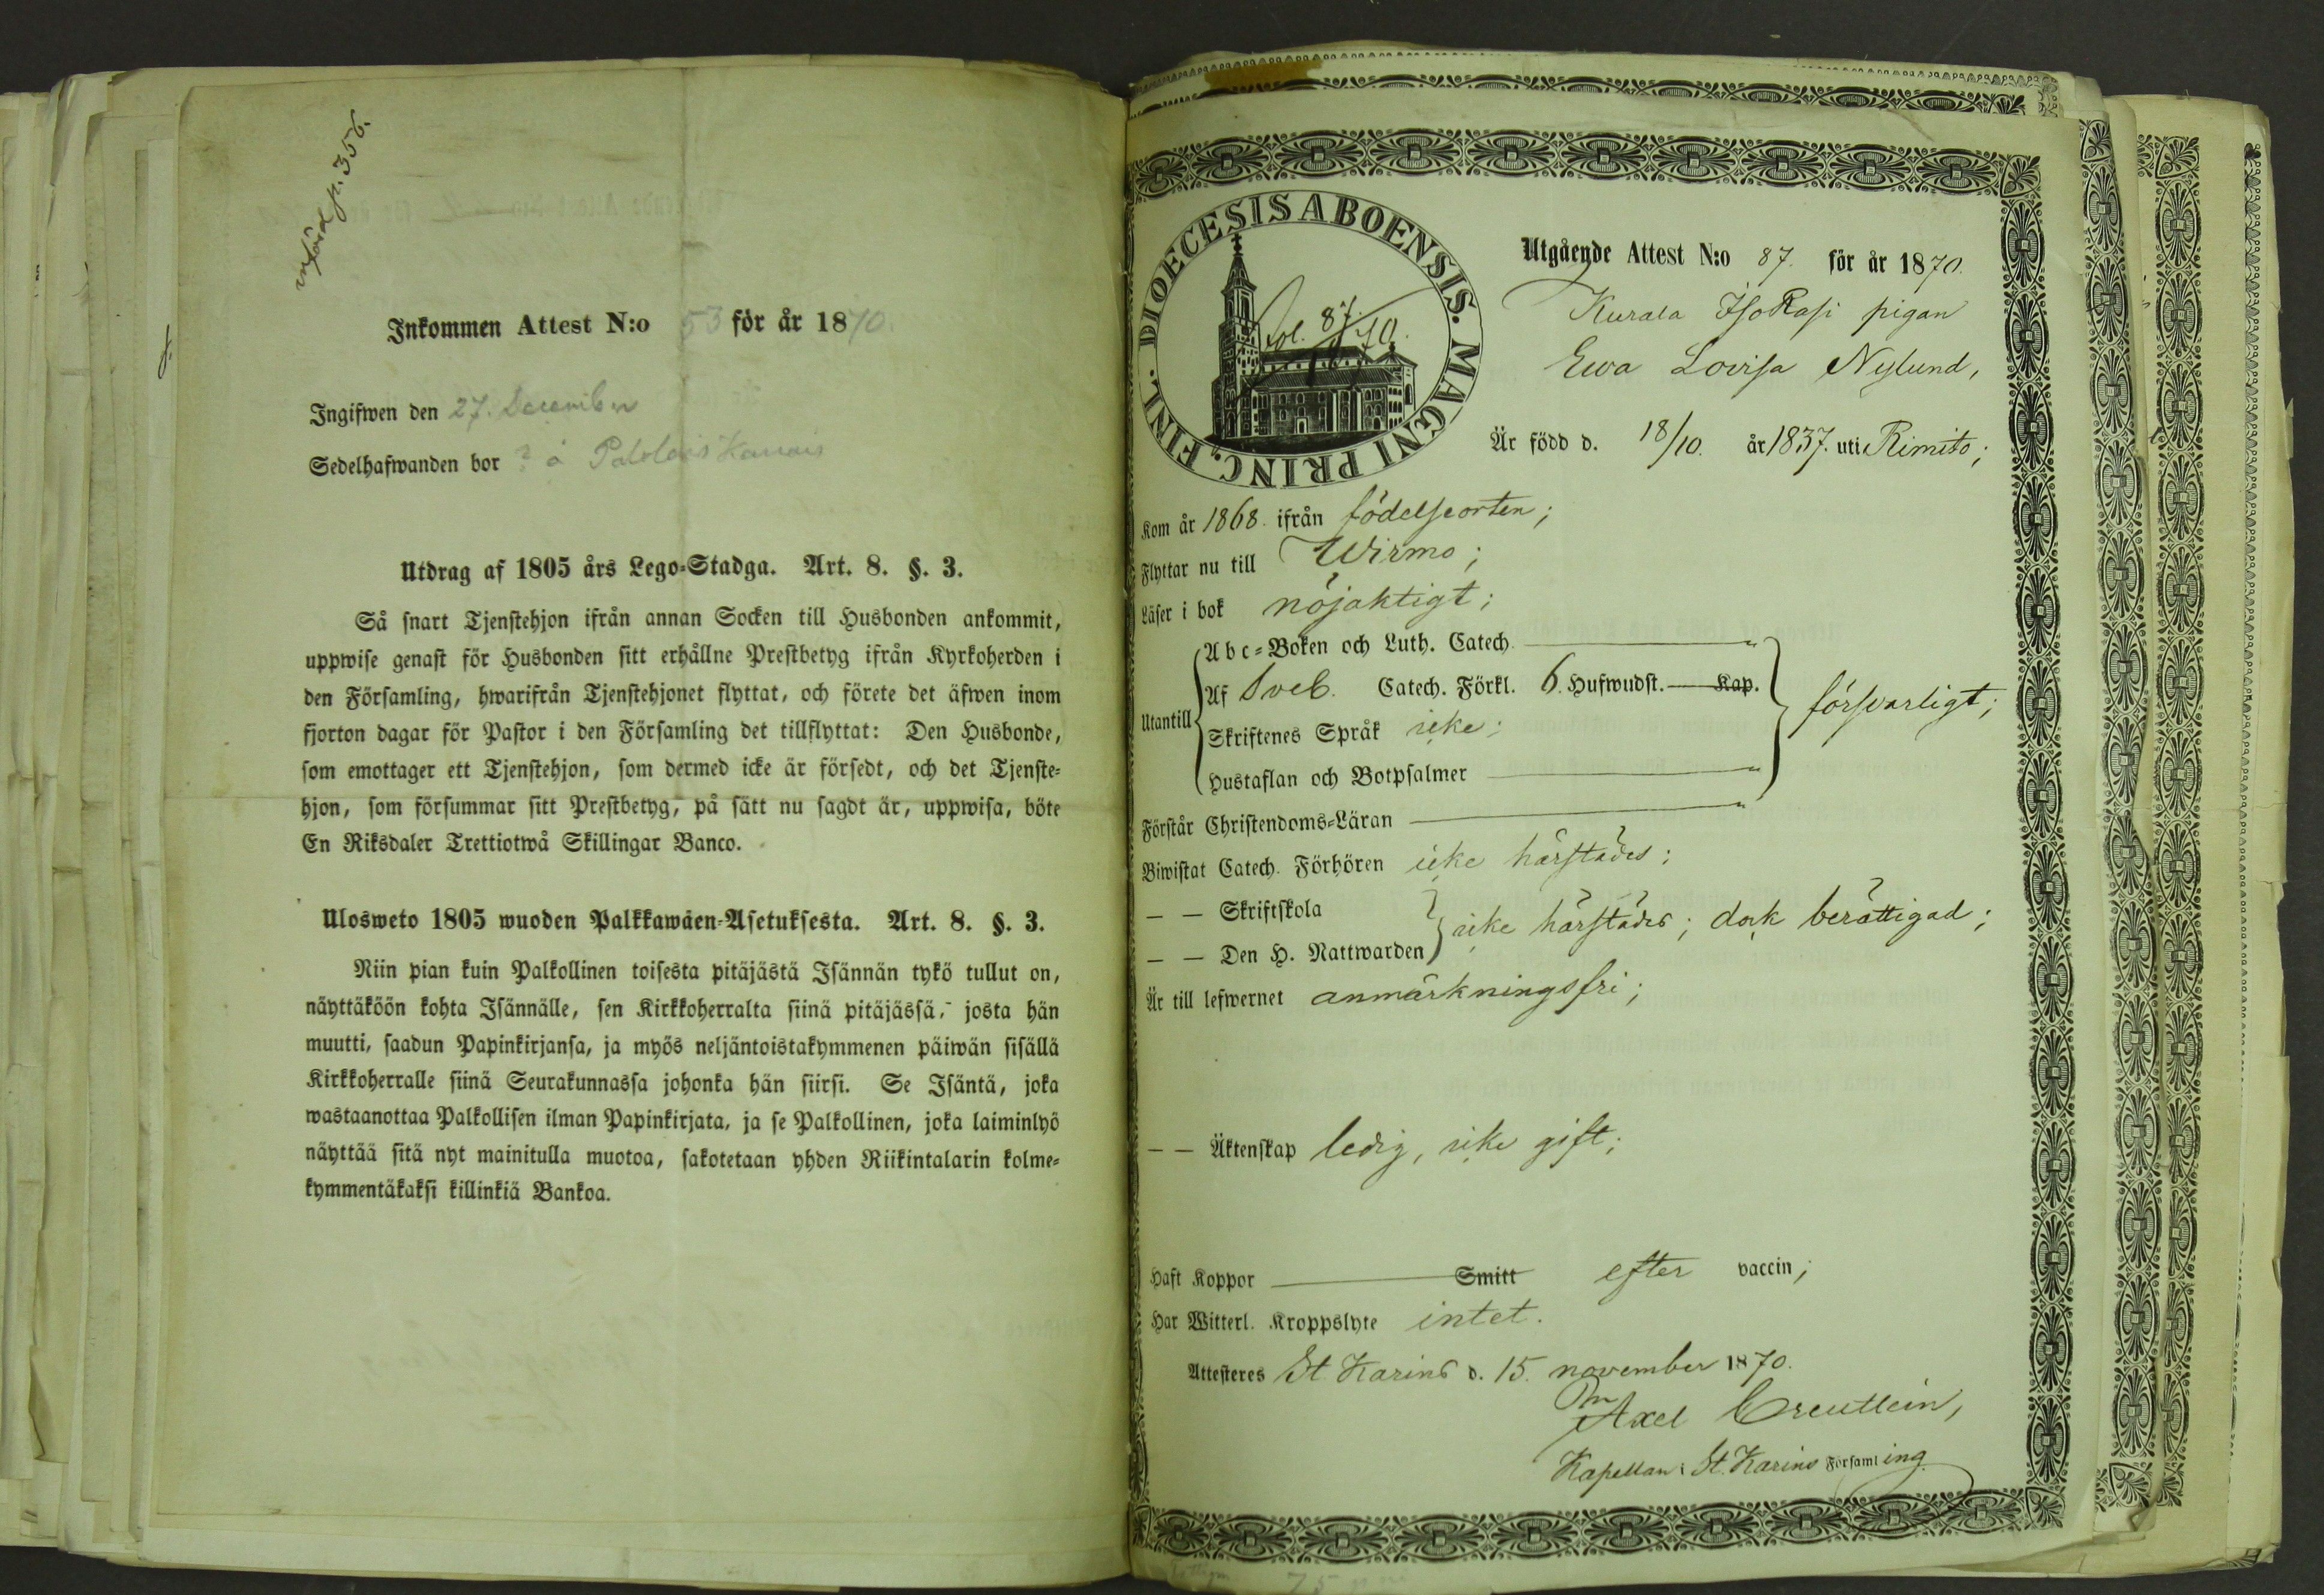 införd p. 356.
Inkommen Attest N:o 53 för år 1870.
Ingifwen den 27. December
Sedelhafwanden bor ? å
Utdrag af 1805 års Lego-Stadga. Art. 8. §. 3.
Så snart Tjenstehjon ifrån annan Socken till Husbonden ankommit,
uppwise genast för Husbonden sitt erhållne Prestbetyg ifrån Kyrkoherden i
den Församling, hwarifrån Tjenstehjonet flyttat, och förete det äfwen inom
fjorton dagar för Pastor i den Församling det tillflyttat: Den Husbonde,
som emottager ett Tjenstehjon, som dermed icke är försedt, och det Tjenste-
hjon, som försummar sitt Prestbetyg, på sätt nu sagdt är, uppwisa, böte
En Riksdaler Trettiotwå Skillingar Banco.
Ulosweto 1805 wuoden Palkkawäen-Asetuksesta. Art. 8. §. 3.
Niin pian kuin Palkollinen toisesta pitäjästä Isännän tykö tullut on,
näyttäköön kohta Isännälle, sen Kirkkoherralta siinä pitäjässä, josta hän
muutti, saadun Papinkirjansa, ja myös neljäntoistakymmenen päiwän sisällä
Kirkkoherralle siinä Seurakunnassa johonka hän siirsi. Se Isäntä, joka
wastaanottaa Palkollisen ilman Papinkirjata, ja se Palkollinen, joka laiminlyö
näyttää sitä nyt mainitulla muotoa, sakotetaan yhden Riikintalarin kolme-
kymmentäkaksi killinkiä Bankoa.
DIOECESIS ABOENSIS. MAGNI PRINC. FINL.
fol. 87.
1870.
Utgående Attest N:o 87. för år 1870.
Kurala IsoRasi pigan
Ewa Lovisa Nylund,
Är född d. 18/10. år 1837. uti Rimito;
Kom år 1868. ifrån födelseorten;
Flyttar nu till Wirmo;
Läser i bok nöjaktigt;
Utantill
Abc-Boken och Luth. Catech. — "
Af Sveb. Catech. Förkl. 6. Hufwudst. — Kap.
Skriftenes Språk icke;
Hustaflan och Botpsalmer — "
försvarligt;
Förstår Christendoms-Läran — "
Biwistat Catech. Förhören icke härstädes;
— — Skriftskola
— — Den H. Nattwarden
icke härstädes; dock berättigad;
Är till lefwernet anmärkningsfri;
— — Äktenskap ledig, icke gift;
Haft Koppor — Smitt efter vaccin;
Har Witterl. Kroppslyte intet.
Attesteras St. Karins d. 15. november 1870.
Axel Creutlein,
Kapellan i St. Karins Församling.